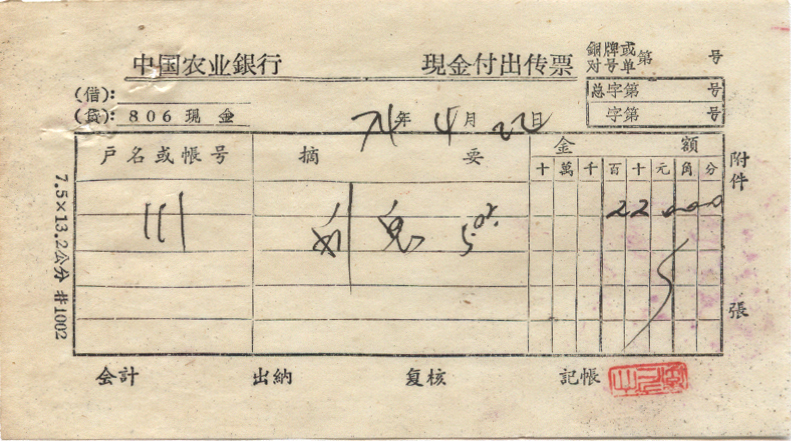 中国农业銀行 現金付出传票
銅牌或
对号单
第 号
总字第 号
字第 号
(借):
(贷): 806 現金
74年 4月 22日
戶名或帳号 摘要 金額
十 萬 千 百 十 元 角 分
111 利息 5.0% 22000
附件 張
7.5×13.2公分 #1002
会計 出納 复核 記帳